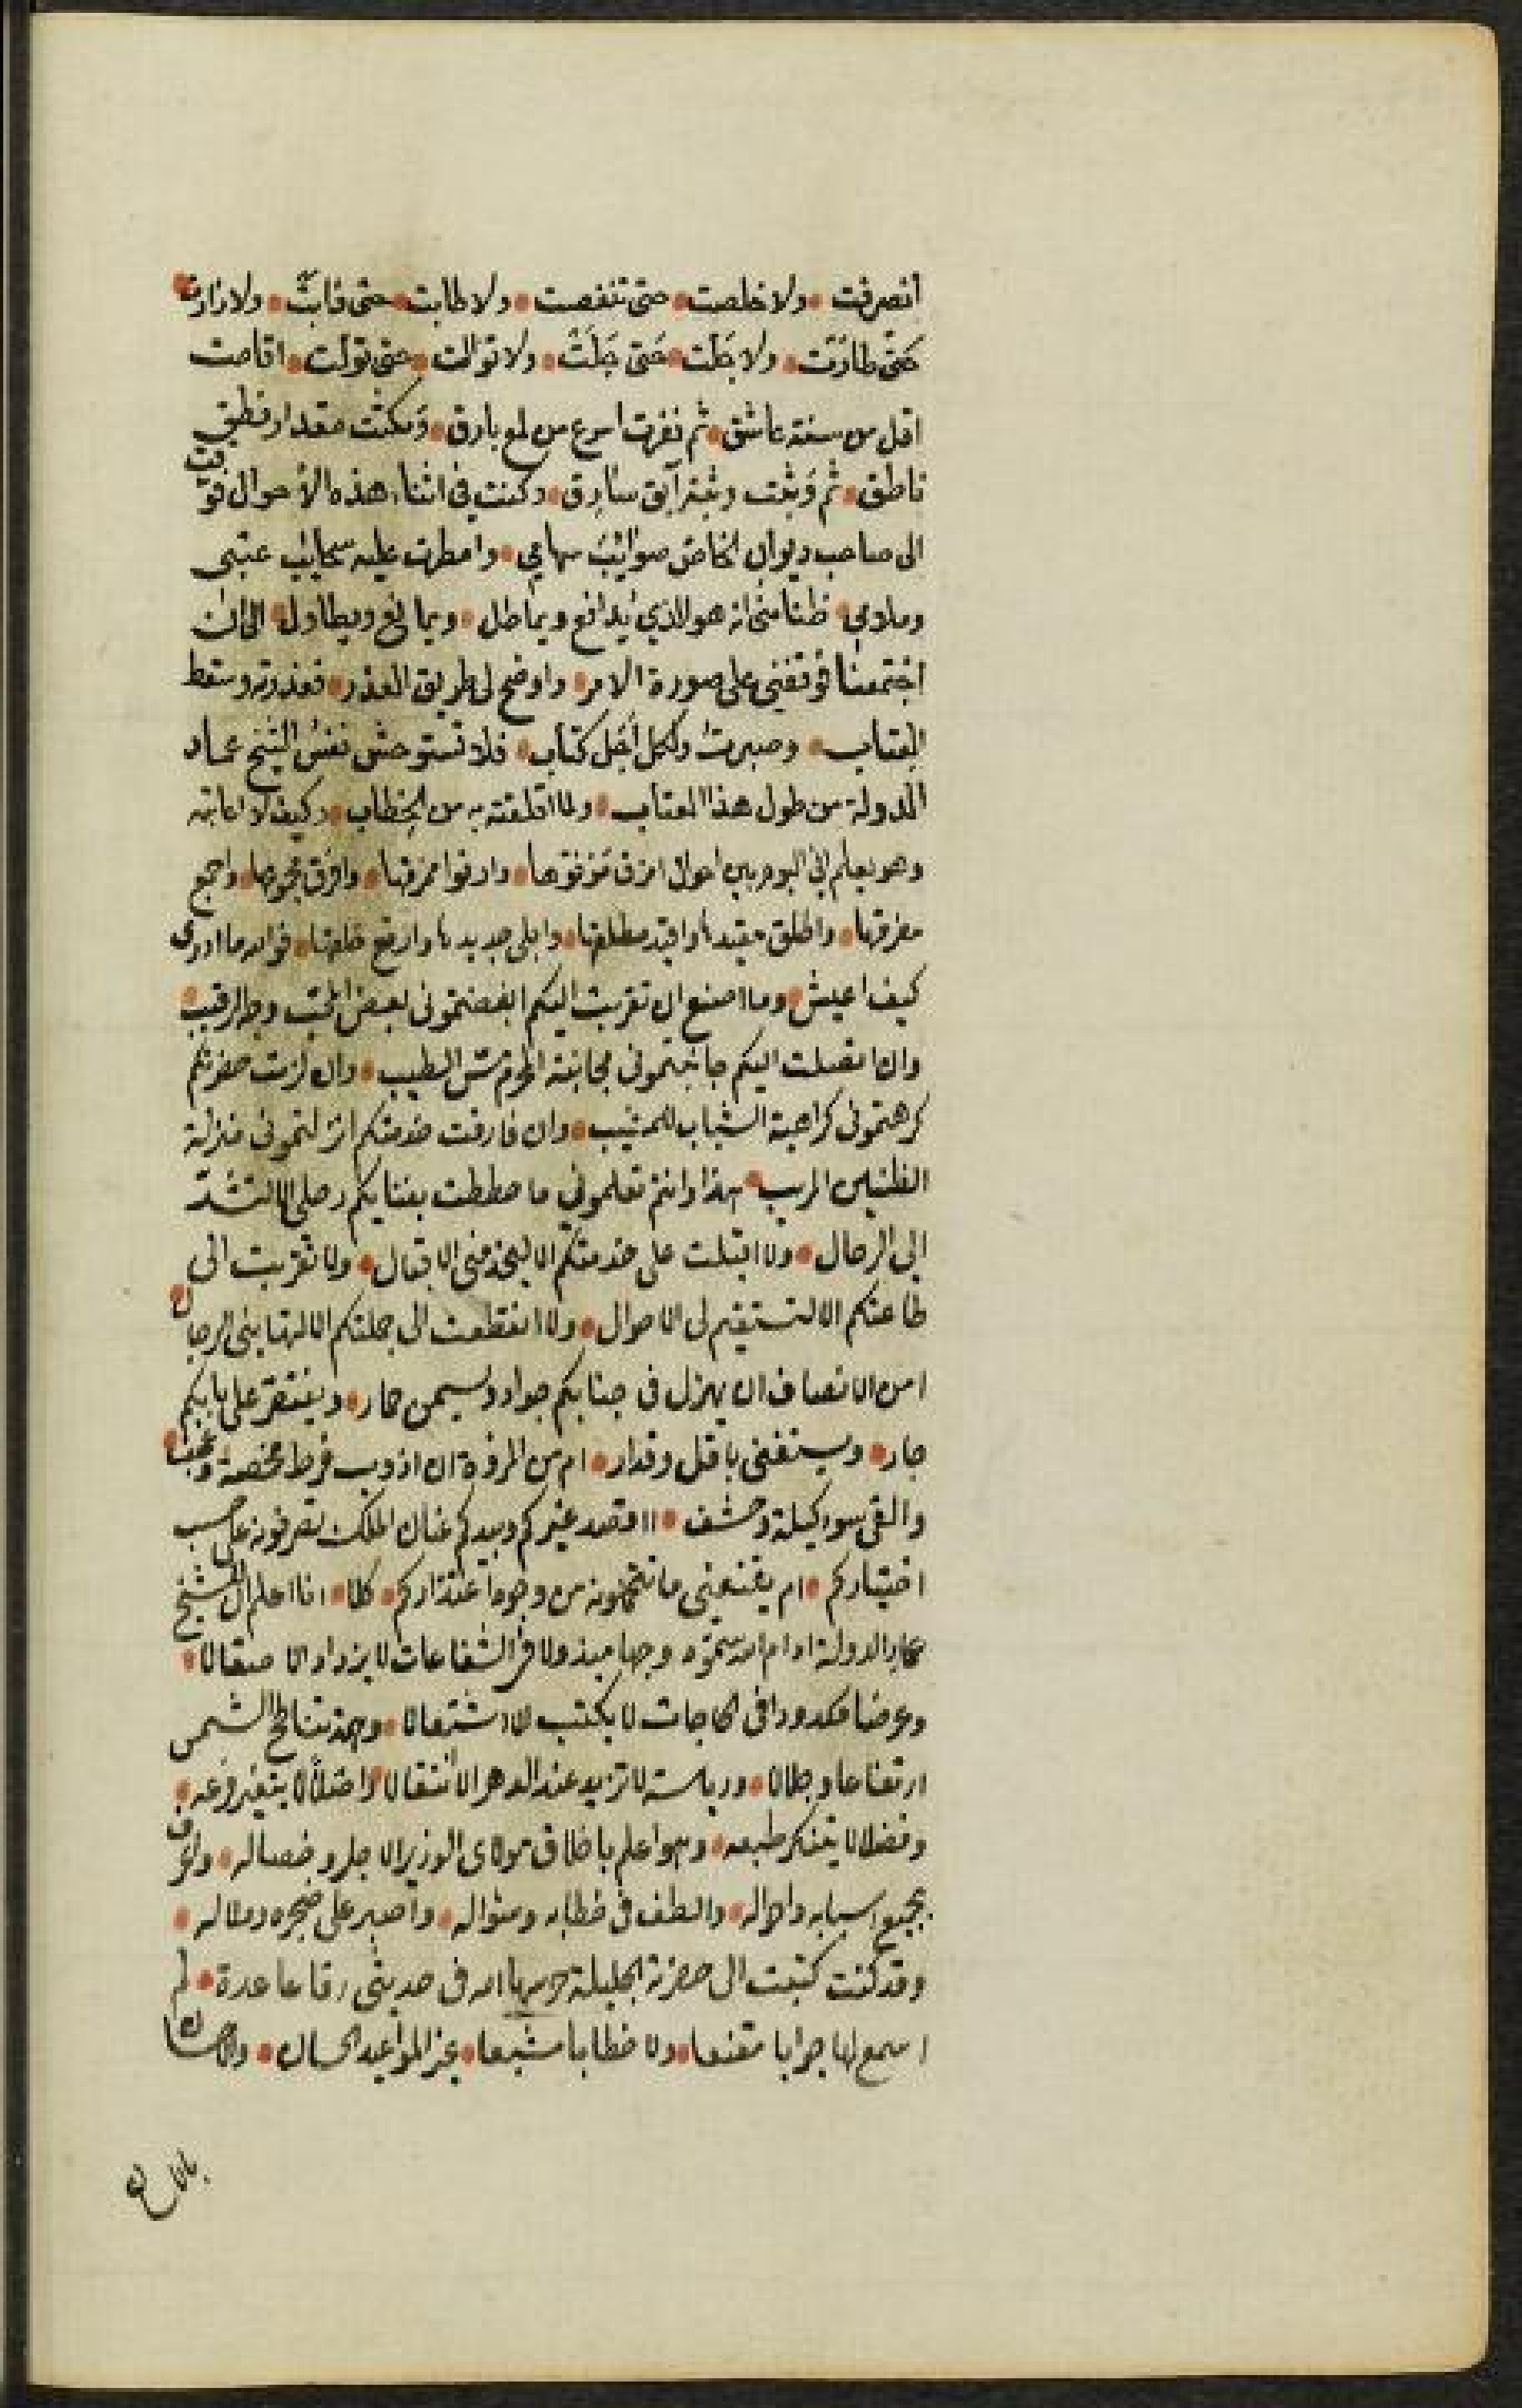 انصرفت • ولا خلصت • حتى تنغصت • ولا طابت • حتى غابت • ولا زارت •
حتّى طارَت • ولا حَلت • حَتى جَلَتْ • ولا توالت • حتى تولت • اقامت
اقل من سنة عاشق • ثم نفرت اسرع من لمع بارق • وَمكثت مقدار نطق
ناطق • ثم وَثبت وثبة آبق سارق • وكنت في اثناء هذه الأحوال فوقت
الى صاحب ديوان الخاص صوائب سهامي • وامطرت عليه سحايب عتبى
وملامي • ظنا منى انه هو الذي يدافع ويماطل • ويمانع ويطاول • الى ان
اجتمعنا فوقفني على صورة الامر • واوضح لى طريق العذر • فعذرته وسقط
العتاب • وصبرت ولكل أجل كتاب • فلا تستوحش نفس الشيخ عماد
الدولة من طول هذا العتاب • ولما اقلقته به من الخطاب • وكيف لا اعاتبه
وهو يعلم انى اليوم بين احوال امزق مَرْفوّها • وارفوا ممزقها • وافرّق مجموعها • واجمع
مفرقها • واطلق مقيدها واقيد مطلقها • وابلى جديدها وارقع خلقها • فوالله ما ادرى
كيف اعيش • وما اصنع ان تقربت اليكم ابغضتمونى بغض المحب وجه الرقيب •
وان اتصلت اليكم جانبتمونى مجانبة الطبيب • وان لزمت حضرتكم
كرهتمونى كراهية الشباب للمشيب • وان فارقت خدمتكم انزلتمونى منزلة
الظنين المريب • هذا وانتم تعلمونى ما حططت بفنايكم رحلى الا لتشدّ
إلى الرحال • ولا اقبلت على خدمتكم الا ليخدمنى الاقبال • ولا تقربت الى
طاعتكم الا لتستقيم لى الاحوال • ولا انقطعت الى جملتكم الا لتهابنى الرجال
امن الانصاف ان يهزل فى جنابكم جواد ويسمن حمار • ويفتقر على بابكم
جار • ويستغنى باقل وقدار • ام من المروة ان اذوب فرط مخمصة وعجف •
والقى سوء كيلة وحشف • ااقصد غيركم وبيدكم عنان الملك تصرفونه على حسب
اختياركم • ام يقنعنى ما تتمحلونه من وجوه اعتذاركم • كلا • انا اعلم ان للشيخ
عماد الدولة ادام الله سموّه وجها مبذولا فى الشفاعات لا يزداد الا صقالا •
وعرضا مكدودا فى الحاجات لا يكتسب الا اشتعالا • وهمة تناطح الشمس
ارتفاعا وجلالا • ورياسة لا تزيد عند الدهر الا انتقالا واصلا لا يتغير فرعه •
وفضلا لا يتنكر طبعه • وهو اعلم باخلاق مولاى الوزير الاجل وخصاله • واعرف
بجميع اسبابه واحواله • والطف فى خطابه وسؤاله • واصبر على ضجره وملاله •
وقد كنت كتبت الى حضرته الجليلة حرسها الله فى حديثى رقاعا عدة • لم
اسمع لها جوابا مقنعا • ولا خطابا مشبعا • غير المواعيد الحسان • والاحسان